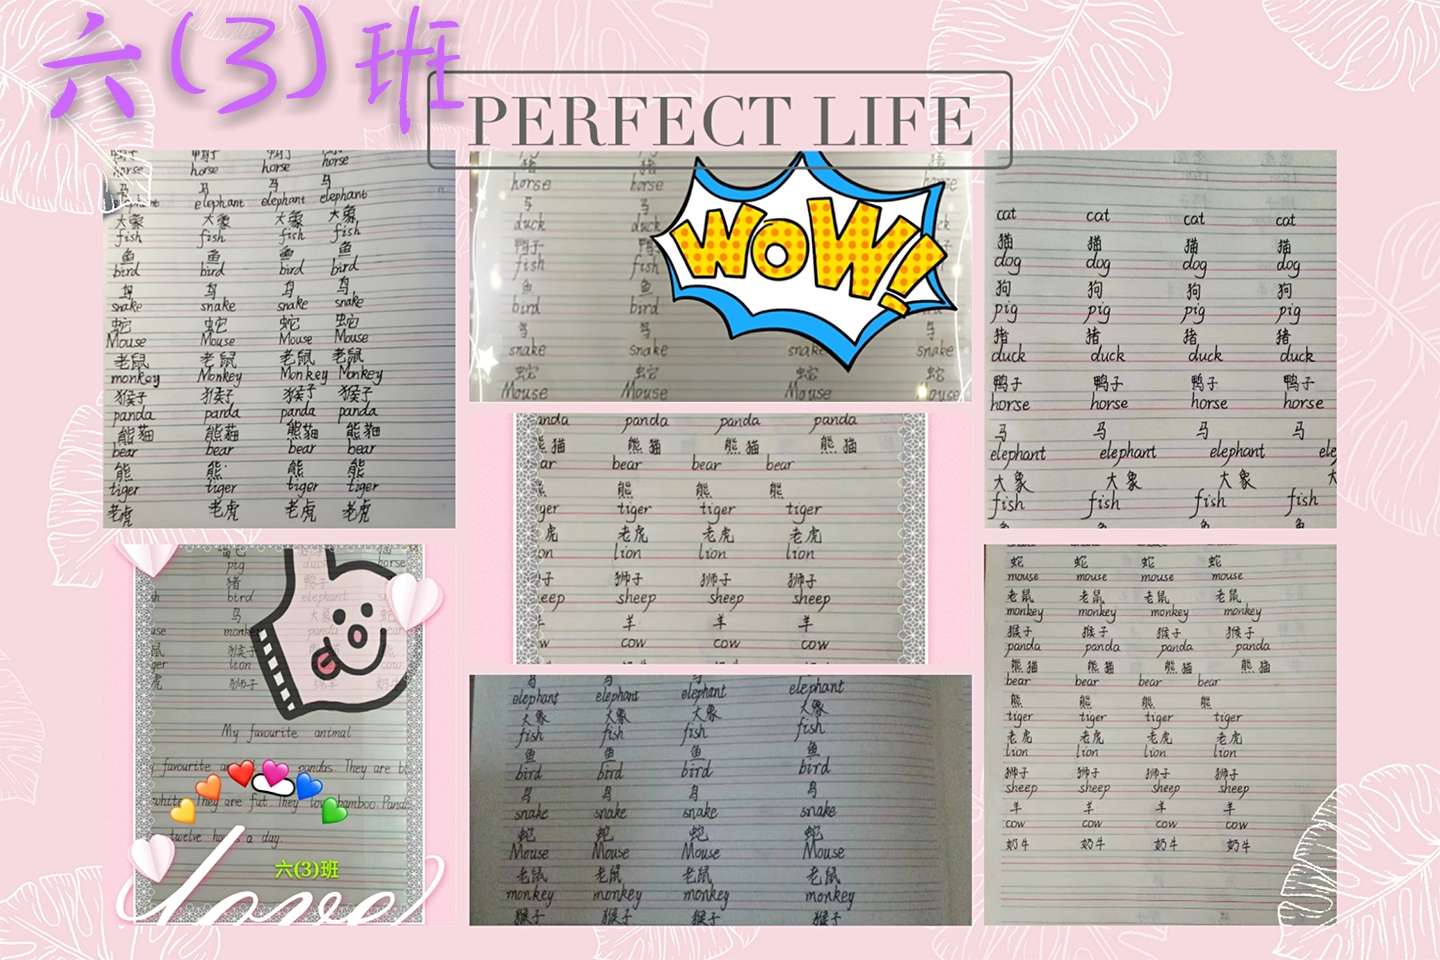 六(3)班
PERFECT LIFE
horse horse horse horse
马 马 马 马
elephant elephant elephant
大象 大象 大象 大象
fish fish fish fish
鱼 鱼 鱼 鱼
bird bird bird bird
鸟 鸟 鸟 鸟
snake snake snake snake
蛇 蛇 蛇 蛇
Mouse Mouse Mouse Mouse
老鼠 老鼠 老鼠 老鼠
monkey Monkey Monkey Monkey
猴子 猴子 猴子 猴子
panda panda panda panda
熊猫 熊猫 熊猫 熊猫
bear bear bear bear
熊 熊 熊 熊
tiger tiger tiger tiger
老虎 老虎 老虎 老虎
猪 猪 猪
horse horse horse
马 马
duck duck
鸭子
fish fish
鱼 鱼
bird bird
鸟 鸟
snake snake snake snake
蛇 蛇 蛇 蛇
Mouse Mouse Mouse Mouse
WOW!
cat cat cat cat
猫 猫 猫 猫
dog dog dog dog
狗 狗 狗 狗
pig pig pig pig
猪 猪 猪 猪
duck duck duck duck
鸭子 鸭子 鸭子 鸭子
horse horse horse horse
马 马 马 马
elephant elephant elephant ele
大象 大象 大象 大
fish fish fish fish
panda panda panda
熊猫 熊猫 熊猫
bear bear bear
熊 熊 熊
tiger tiger tiger
老虎 老虎 老虎
lion lion lion
狮子 狮子 狮子
sheep sheep sheep
羊 羊 羊
cow cow cow
pig horse
猪
bird elephant
马 大象 蛇
panda bear
lion cow
狮子
My favourite animal
favourite pandas. They are b
white. They are fat. They love bamboo. Panda
twelve hours a day.
六(3)班
love
elephant elephant elephant elephant
大象 大象 大象 大象
fish fish fish fish
鱼 鱼 鱼 鱼
bird bird bird bird
鸟 鸟 鸟 鸟
snake snake snake snake
蛇 蛇 蛇 蛇
Mouse Mouse Mouse Mouse
老鼠 老鼠 老鼠 老鼠
monkey monkey monkey monkey
猴子 猴子 猴子 猴子
蛇 蛇 蛇 蛇
mouse mouse mouse mouse
老鼠 老鼠 老鼠 老鼠
monkey monkey monkey monkey
猴子 猴子 猴子 猴子
panda panda panda panda
熊猫 熊猫 熊猫 熊猫
bear bear bear bear
熊 熊 熊 熊
tiger tiger tiger tiger
老虎 老虎 老虎 老虎
lion lion lion lion
狮子 狮子 狮子 狮子
sheep sheep sheep sheep
羊 羊 羊 羊
cow cow cow cow
奶牛 奶牛 奶牛 奶牛